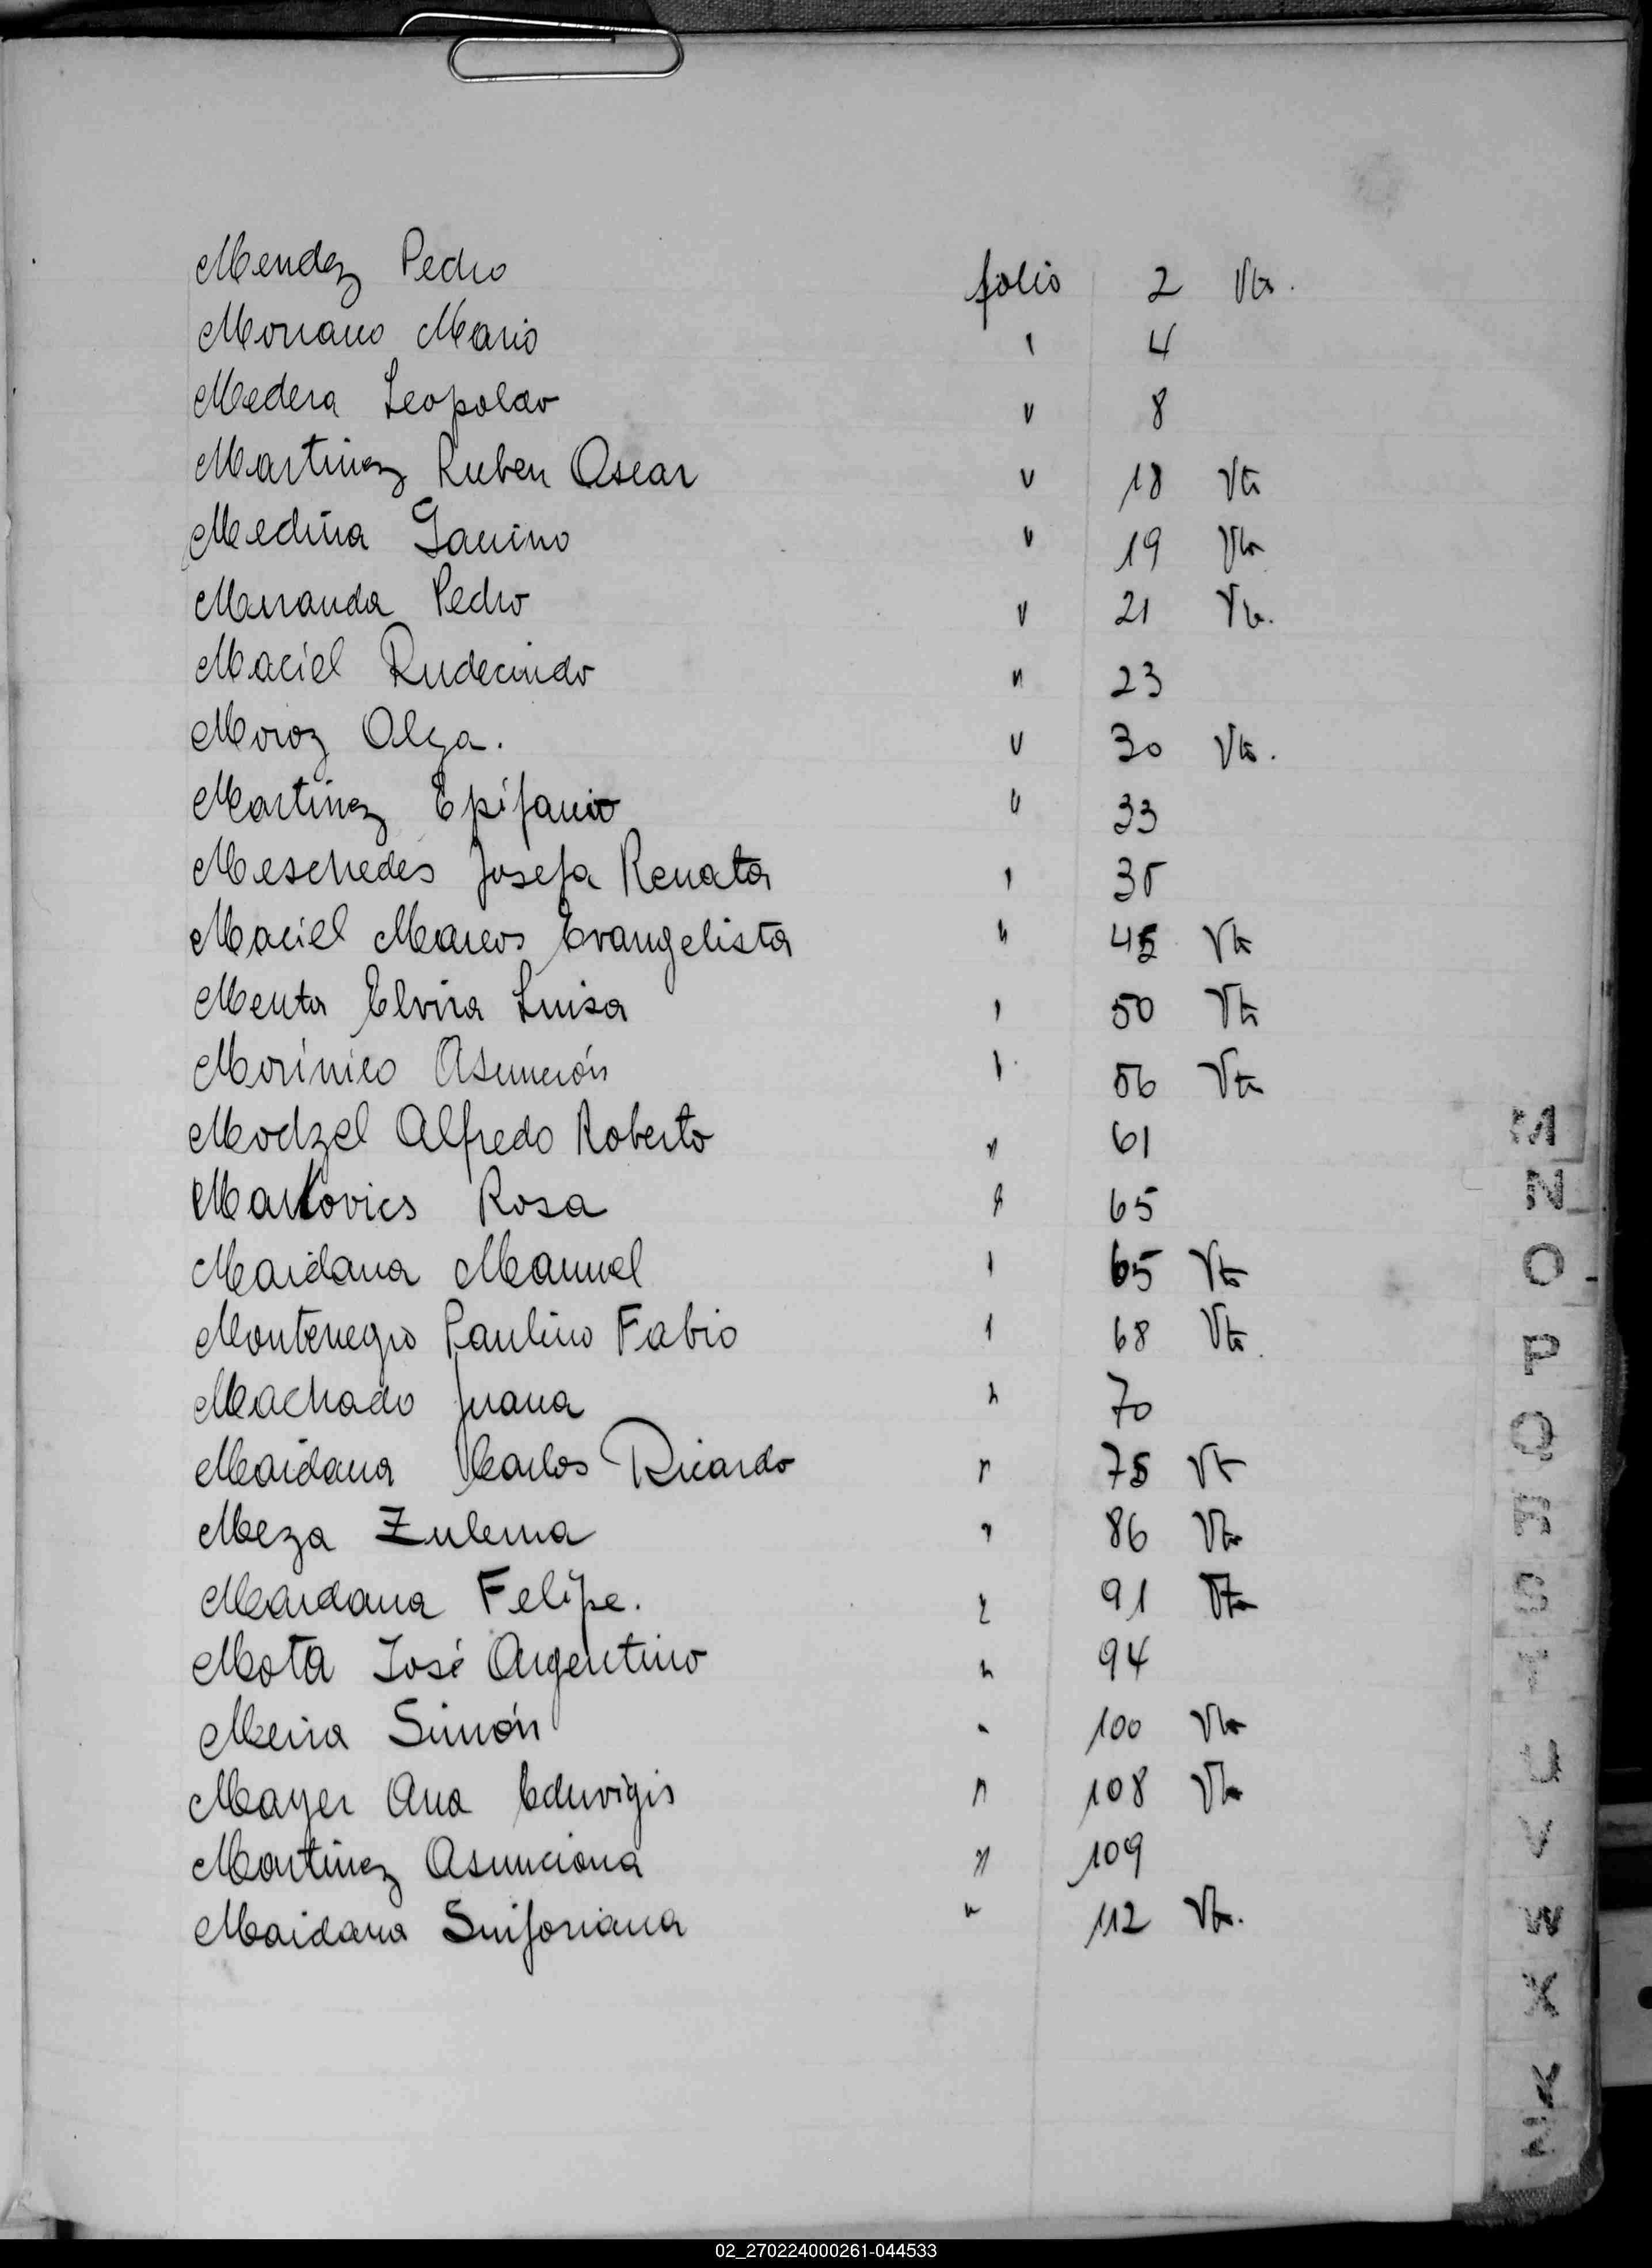 Mendez Pedro folio 2 Vta.
Moriano Mario " 4
Medera Leopoldo " 8
Martinez Ruben Oscar " 18 Vta
Medina Ganino " 19 Vta
Miranda Pedro " 21 Vta.
Maciel Rudecindo " 23
Moroz Olga. " 30 Vta.
Martinez Epifanio " 33
Meschedes Josefa Renata " 35
Maciel Marcos Evangelista " 45 Vta
Menta Elvira Luisa " 50 Vta
Morinico Asunción " 56 Vta
Modzel Alfredo Roberto " 61
Markovics Rosa " 65
Maidana Manuel " 65 Vta
Montenegro Paulino Fabio " 68 Vta.
Machado Juana " 70
Maidana Carlos Ricardo " 75 Vta
Meza Zulema " 86 Vta
Maidana Felipe. " 91 Vta
Mota José Argentino " 94
Meira Simón " 100 Vta
Mayer Ana Eduvigis " 108 Vta
Martinez Asunciona " 109
Maidana Sinforiana " 112 Vta.
M
N
O
P
Q
R
S
T
U
V
W
X
Y
Z
02_270224000261-044533